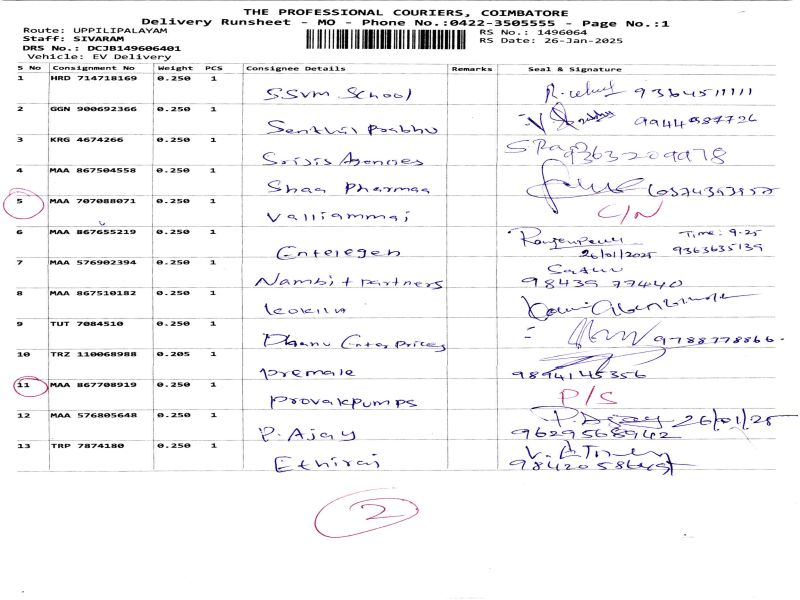 THE PROFESSIONAL COURIERS, COIMBATORE
Delivery Runsheet - MO - Phone No.:0422-3505555 - Page No.:1
Route: UPPILIPALAYAM RS No.: 1496064
Staff: SIVARAM RS Date: 26-Jan-2025
DRS No.: DCJB149606401
Vehicle: EV Delivery
S No Consignment No Weight PCS Consignee Details Remarks Seal & Signature
1 HRD 714718169 0.250 1 SSVM School 9364511111
2 GGN 900692366 0.250 1 Senthil Prabhu 9944987726
3 KRG 4674266 0.250 1 Srisis Agencies 9363209978
4 MAA 867504558 0.250 1 Shaa Pharmaa
5 MAA 707088071 0.250 1 Valliammai C/N
6 MAA 867655219 0.250 1 Entelegen Time: 9.25
26/01/2025 9363635139
7 MAA 576902394 0.250 1 Nambi + partners
98439 77440
8 MAA 867510182 0.250 1 kokila
9 TUT 7084510 0.250 1 Dhanu Enterprices 9788778866.
10 TRZ 110068988 0.205 1 premale
9894145356
11 MAA 867708919 0.250 1 Provakpumps P/S
12 MAA 576805648 0.250 1 P. Ajay P. 26/01/25
9629568942
13 TRP 7874180 0.250 1 Ethiraj
2